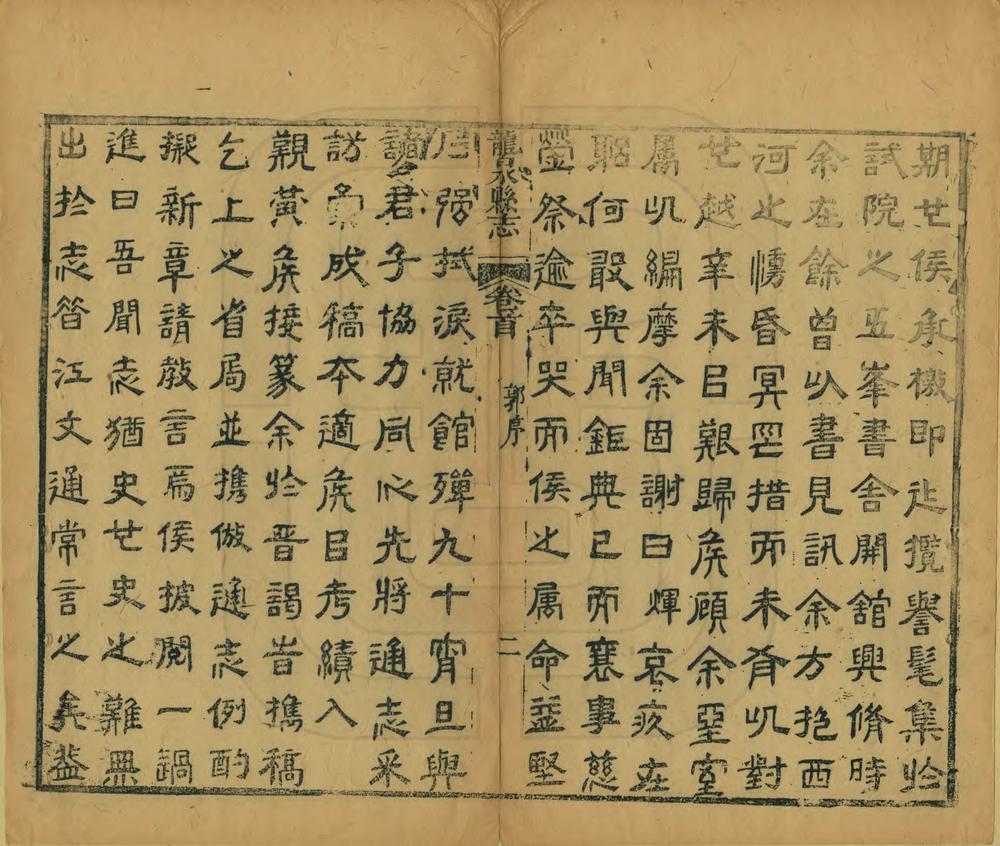 期也侯承檄即止攬譽髦集於
試院之五峯書舍開館興脩時
余在餘曾以書見訊余方抱西
河之慟昏冥罔措而未有以對
也越辛未日艱歸侯顧余堊室
屬以編摩余固謝曰煇哀疚在
躬何敢與聞鉅典已而襄事慈
塋祭逾卒哭而侯之屬命益堅
龍泉縣志 卷首 郭序 二
乃强拭淚就館殫九十宵旦與
諸君子協力同心先將通志采
訪彙成稿本適侯日考績入
覲黃侯接篆余於晉謁旹攜稿
乞上之省局並攜倣通志例酌
擬新章請敎言焉侯披閱一過
進曰吾聞志猶史也史之難無
出於志昝江文通常言之矣益